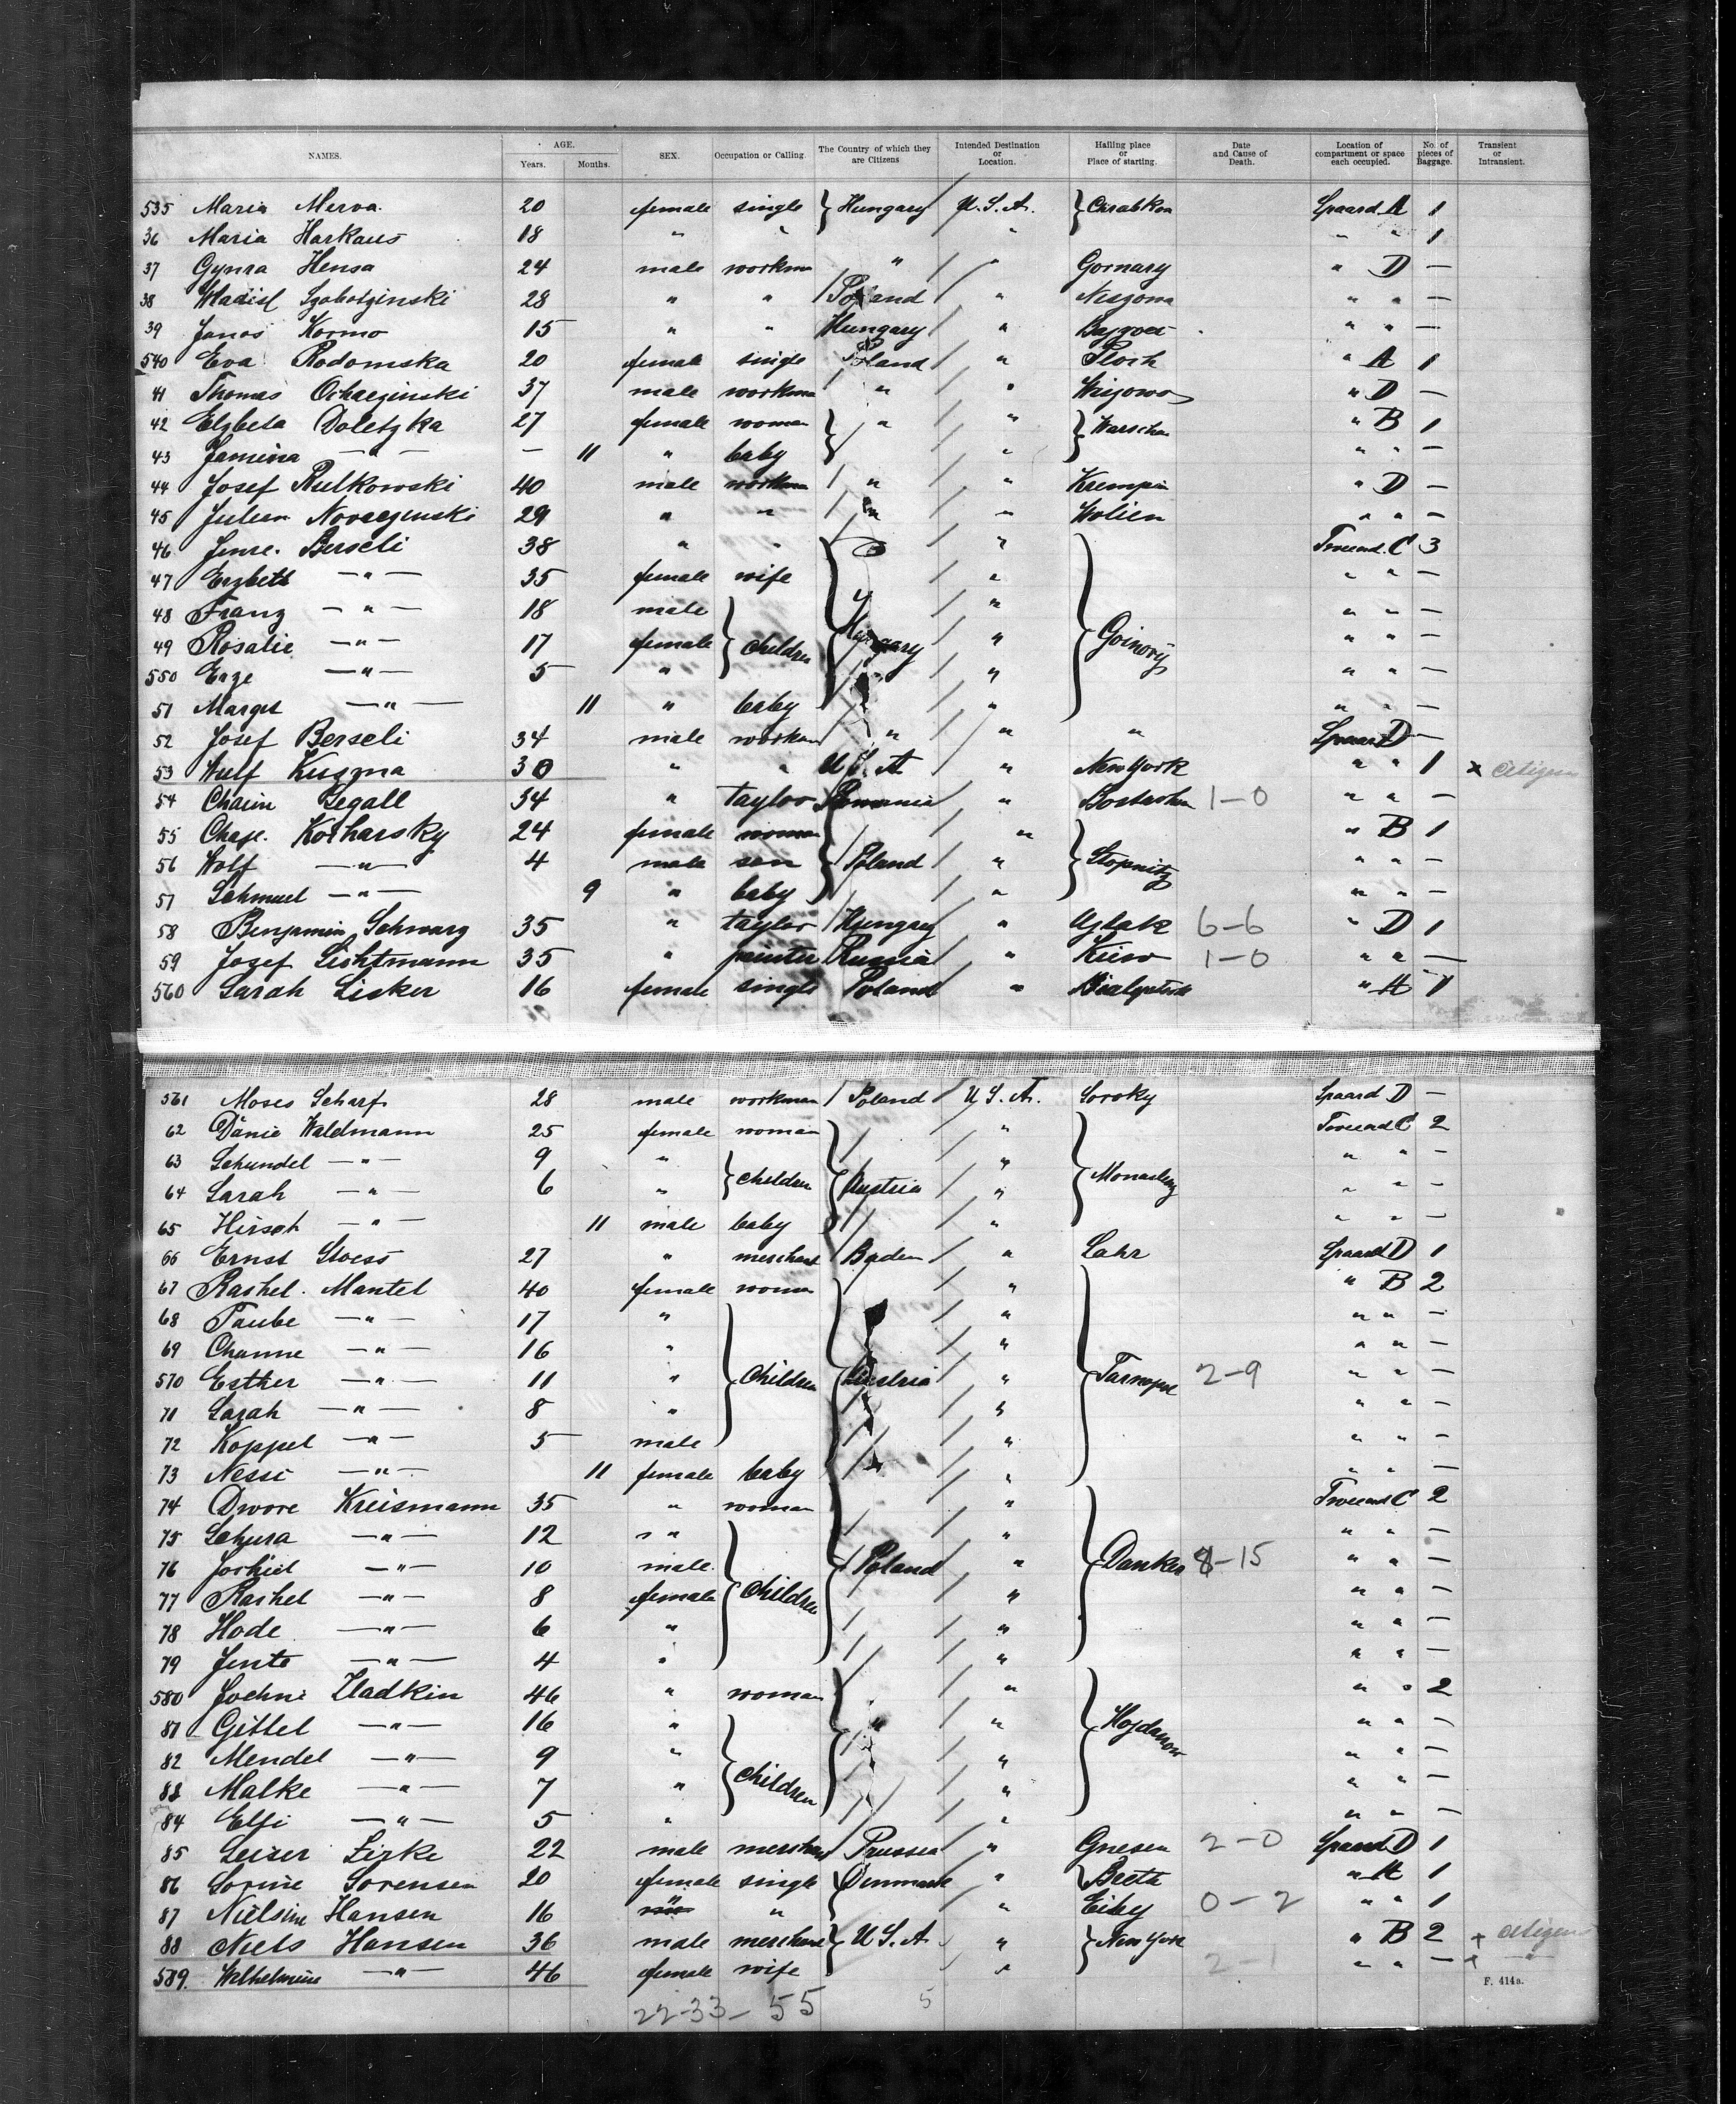 NAMES. AGE. Years. Months. SEX. Occupation or Calling. The Country of which they are Citizens Intended Destination or Location. Hailing place or Place of starting. Date and Cause of Death. Location of compartment or space each occupied. No. of pieces of Baggage. Transient or Intransient.
535 Maria Merva 20 female single } Hungary U.S.A. } Spaard A 1
36 Maria Harkaus 18 " " " " " 1
37 Gynra Hensa 24 male workman " " Gornary " D —
38 Wladisl Szobotzinski 28 " " Poland " Neszowa " " —
39 Janos Kormo 15 " " Hungary " " " —
540 Eva Rodomska 20 female single Poland " Plock " A 1
41 Thomas Ochaezinski 37 male workman " " " D —
42 Elzbeta Doletzka 27 female woman } " " } Warschau " B 1
43 Jamina — " — — 11 " baby " " " —
44 Josef Rulkowski 40 male workman " " Krempin " D —
45 Julian Novaezinski 29 " " " " Wolien " " —
46 Imre Berseli 38 " " " Tweend. C 3
47 Erzbett — " — 35 female wife " " " —
48 Franz — " — 18 male " " " —
49 Rosalie — " — 17 female } children { Hungary " } Goinovij " " —
550 Erze — " — 5 " " " " —
51 Margit — " — 11 " baby " " " —
52 Josef Berseli 34 male workman " " " Spaard D —
53 Wulf Kiszzna 30 " " U.S.A " New York " " 1 x citizen
54 Chaim Segall 34 " taylor Romania " 1-0 " " —
55 Chaje Kotharsky 24 female woman " " B 1
56 Wolf — " — 4 male son } Poland " } Stopnitz " " —
57 Schmuel — " — 9 " baby " " " —
58 Benjamin Schwarz 35 " taylor Hungary " Ujlak 6-6 " D 1
59 Josef Lichtmann 35 " painter Russia " Kiew 1-0 " " —
560 Sarah Lisker 16 female single Poland " Bialystock " A 1
561 Moses Scharf 28 male workman Poland U.S.A. Soroky Spaard D —
62 Dänie Waldmann 25 female woman " Tweend C 2
63 Schundel — " — 9 " " " " —
64 Sarah — " — 6 " } children { Austria " } " " —
65 Hirsch — " — 11 male baby " " " —
66 Ernst Stoess 27 " merchant Baden " Lahr Spaard D 1
67 Rashel Mantel 40 female woman " " B 2
68 Taube — " — 17 " " " " —
69 Channe — " — 16 " " " " —
570 Esther — " — 11 " } children { Austria " } Tarnopol 2-9 " " —
71 Sarah — " — 8 " " " " —
72 Koppel — " — 5 male " " " —
73 Nessi — " — 11 female baby " " " —
74 Dwore Kreismann 35 " woman " Tweend C 2
75 Schura — " — 12 " " " " —
76 Joshiel — " — 10 male { Poland " } Danker 8-15 " " —
77 Rashel — " — 8 female } children " " " —
78 Hode — " — 6 " " " " —
79 Jente — " — 4 " " " " —
580 Jochne Zladkin 46 " woman " " " 2
81 Gittel — " — 16 " " " } " " —
82 Mendel — " — 9 " " " " —
83 Malke — " — 7 " } children " " " —
84 Elsi — " — 5 " " " " —
85 Leiser Zirke 22 male merchant Prussia " Gnesen 2-0 Spaard D 1
86 Sorine Sorensen 20 female single { Denmark " Beeta " A 1
87 Nielsine Hansen 16 " " " Eiby 0-2 " " 1
88 Niels Hansen 36 male merchant } U.S.A. " } New York " B 2 + citizen
589. Wilhelmine — " — 46 female wife " 2-1 " " — + "
F. 414a.
22-33-55 5